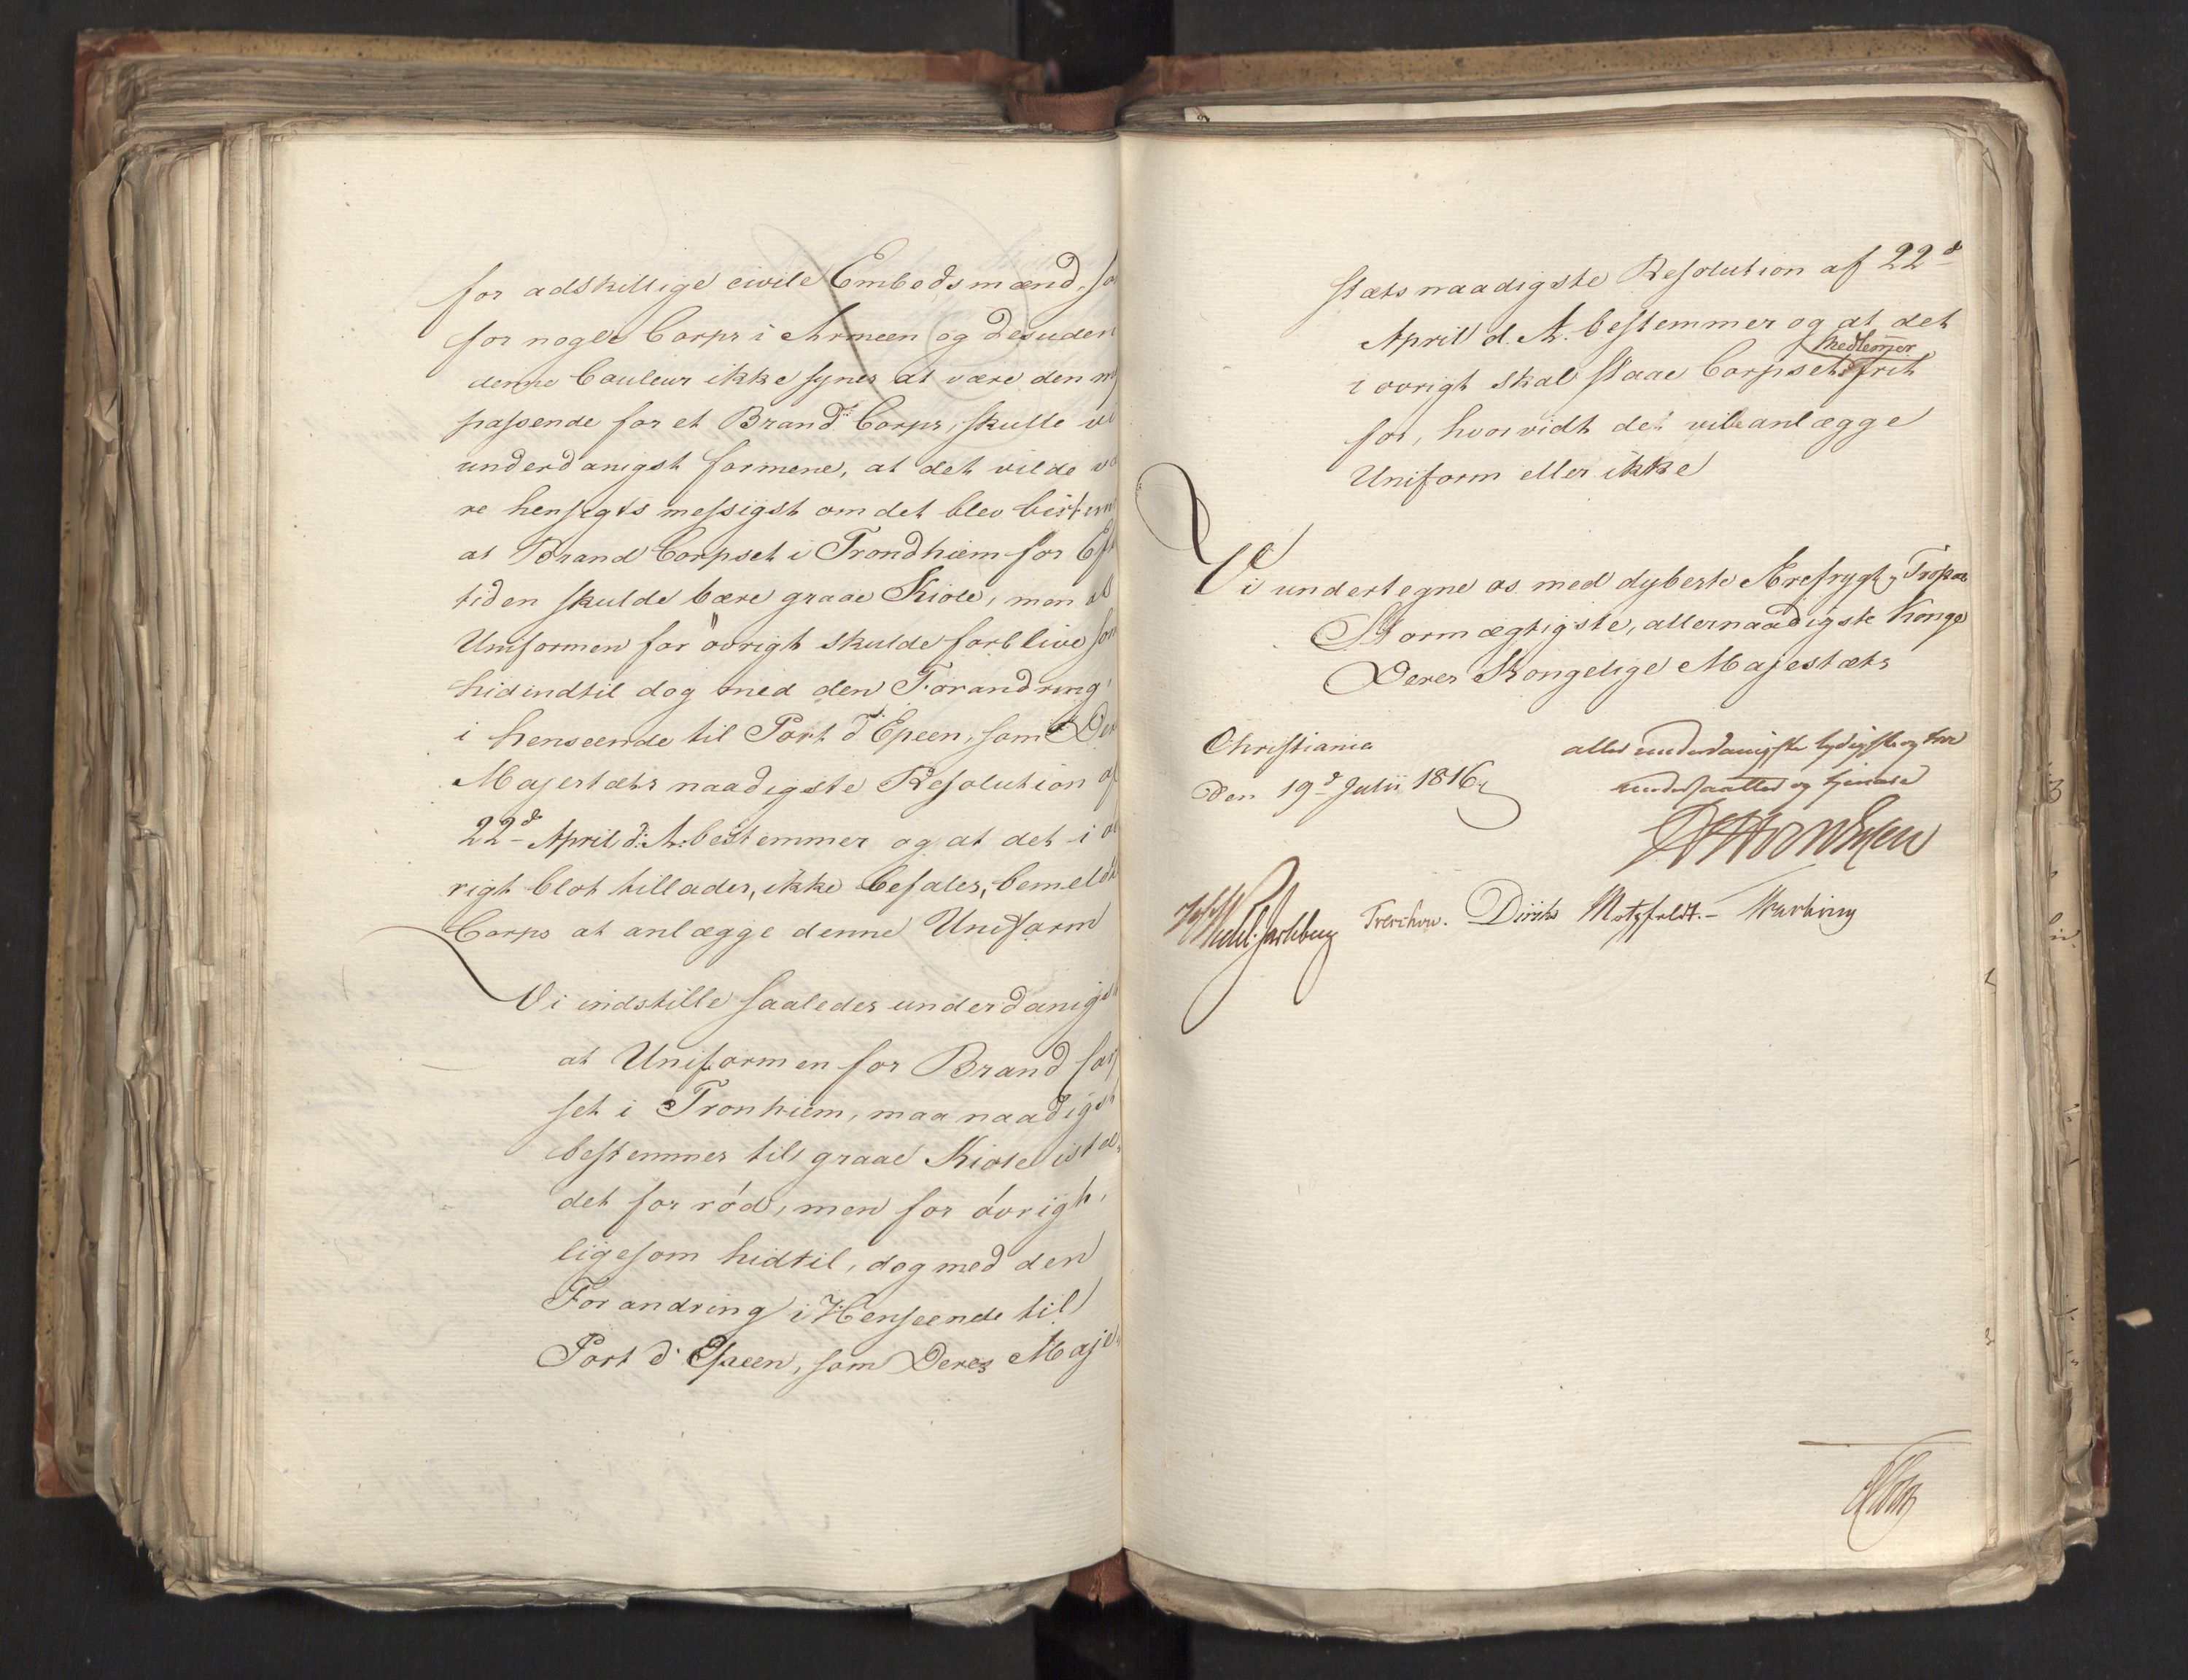 for adskillige civile Embedsmænd, so
for nogle Corps i Armeen og desuden
denne Couleur ikke synes at være den m
passende for et Brand Corps, skulle vi
underdanigst formene, at det vilde væ
re hensigts messigst om det blev bestem
at Brand Corpset i Trondhiem for Eft
tiden skulde bære graae Kiole, men at
Uniformen for övrigt skulde forblive som
hidindtil dog med den Forandring
i henseende til Port d'Epeen, som Der
Majestæts naadigste Resolution af
22d April d: A: bestemmer og at det i öv
rigt blot tillades, ikke befales, bemeldt
Corps at anlægge denne Uniform
Vi indstille saaledes underdanigst
at Uniformen for Brand Corp
set i Tronhiem, maa naadigst
bestemmes til graae Kiole istæ-
det for rød, men for övrigt,
ligesom hidtil, dog med den
Forandring i Henseende til
Port d'Epeen, som Deres Maje-
stæts naadigste Resolution af 22d
April d. A. bestemmer og at det
Medlemmer
i øvrigt skal staae Corpsets frit
for, hvorvidt de vil anlægge
Uniform eller ikke
Vi undertegne os med dybeste Ærefrygt,
Stormægtigste, allernaadigste Konge
Deres Kongelige Majestæts
Christiania
Den 19d Julii 1816
allerunderdanigste lydigste og troe
undersaatter og tjenere
Wedel Jarlsberg Treschow. Diriks Motzfeldt.-